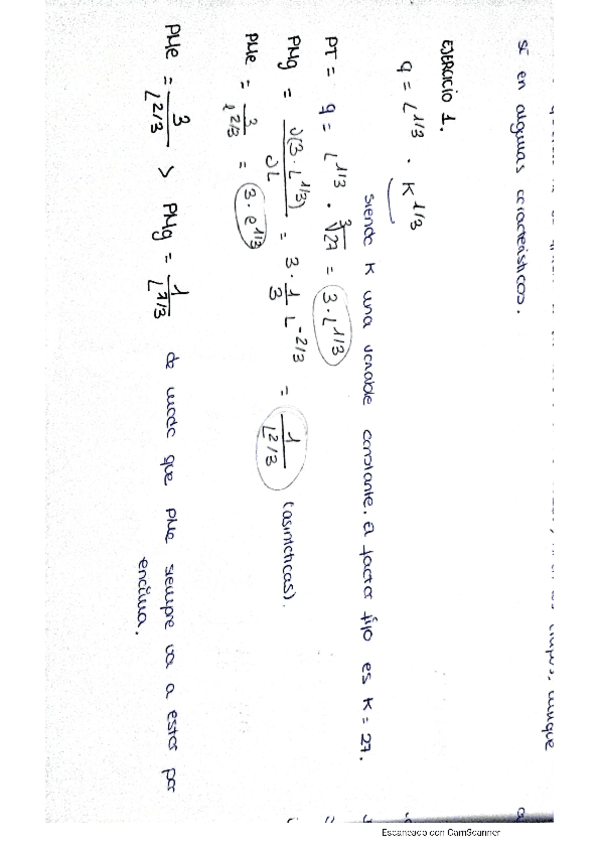 si en algunas características.
EJERCICIO 1.
q = L^1/3 · K^1/3
siendo K una variable constante. El factor fijo es K = 27.
PT = q = L^1/3 · ∛27 = 3·L^1/3
PMg = ∂(3·L^1/3) / ∂L = 3 · 1/3 L^-2/3 = 1/L^2/3 (asintóticas).
PMe = 3/L^2/3 = 3·e^1/3
PMe = 3/L^2/3 > PMg = 1/L^2/3 de modo que PMe siempre va a estar por encima.
Escaneado con CamScanner